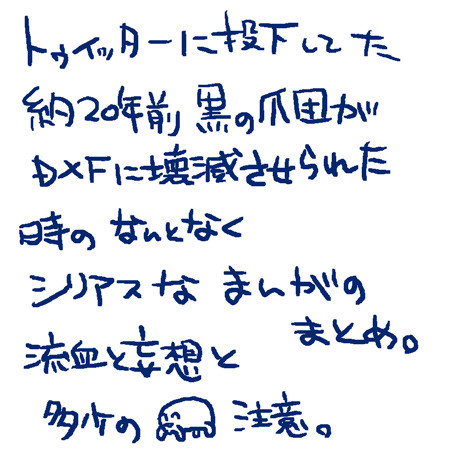 トゥイッターに投下してた
約20年前黒の爪団が
DXFに壊滅させられた
時のなんとなく
シリアスなまんがの
まとめ。
流血と妄想と
多少の 注意。